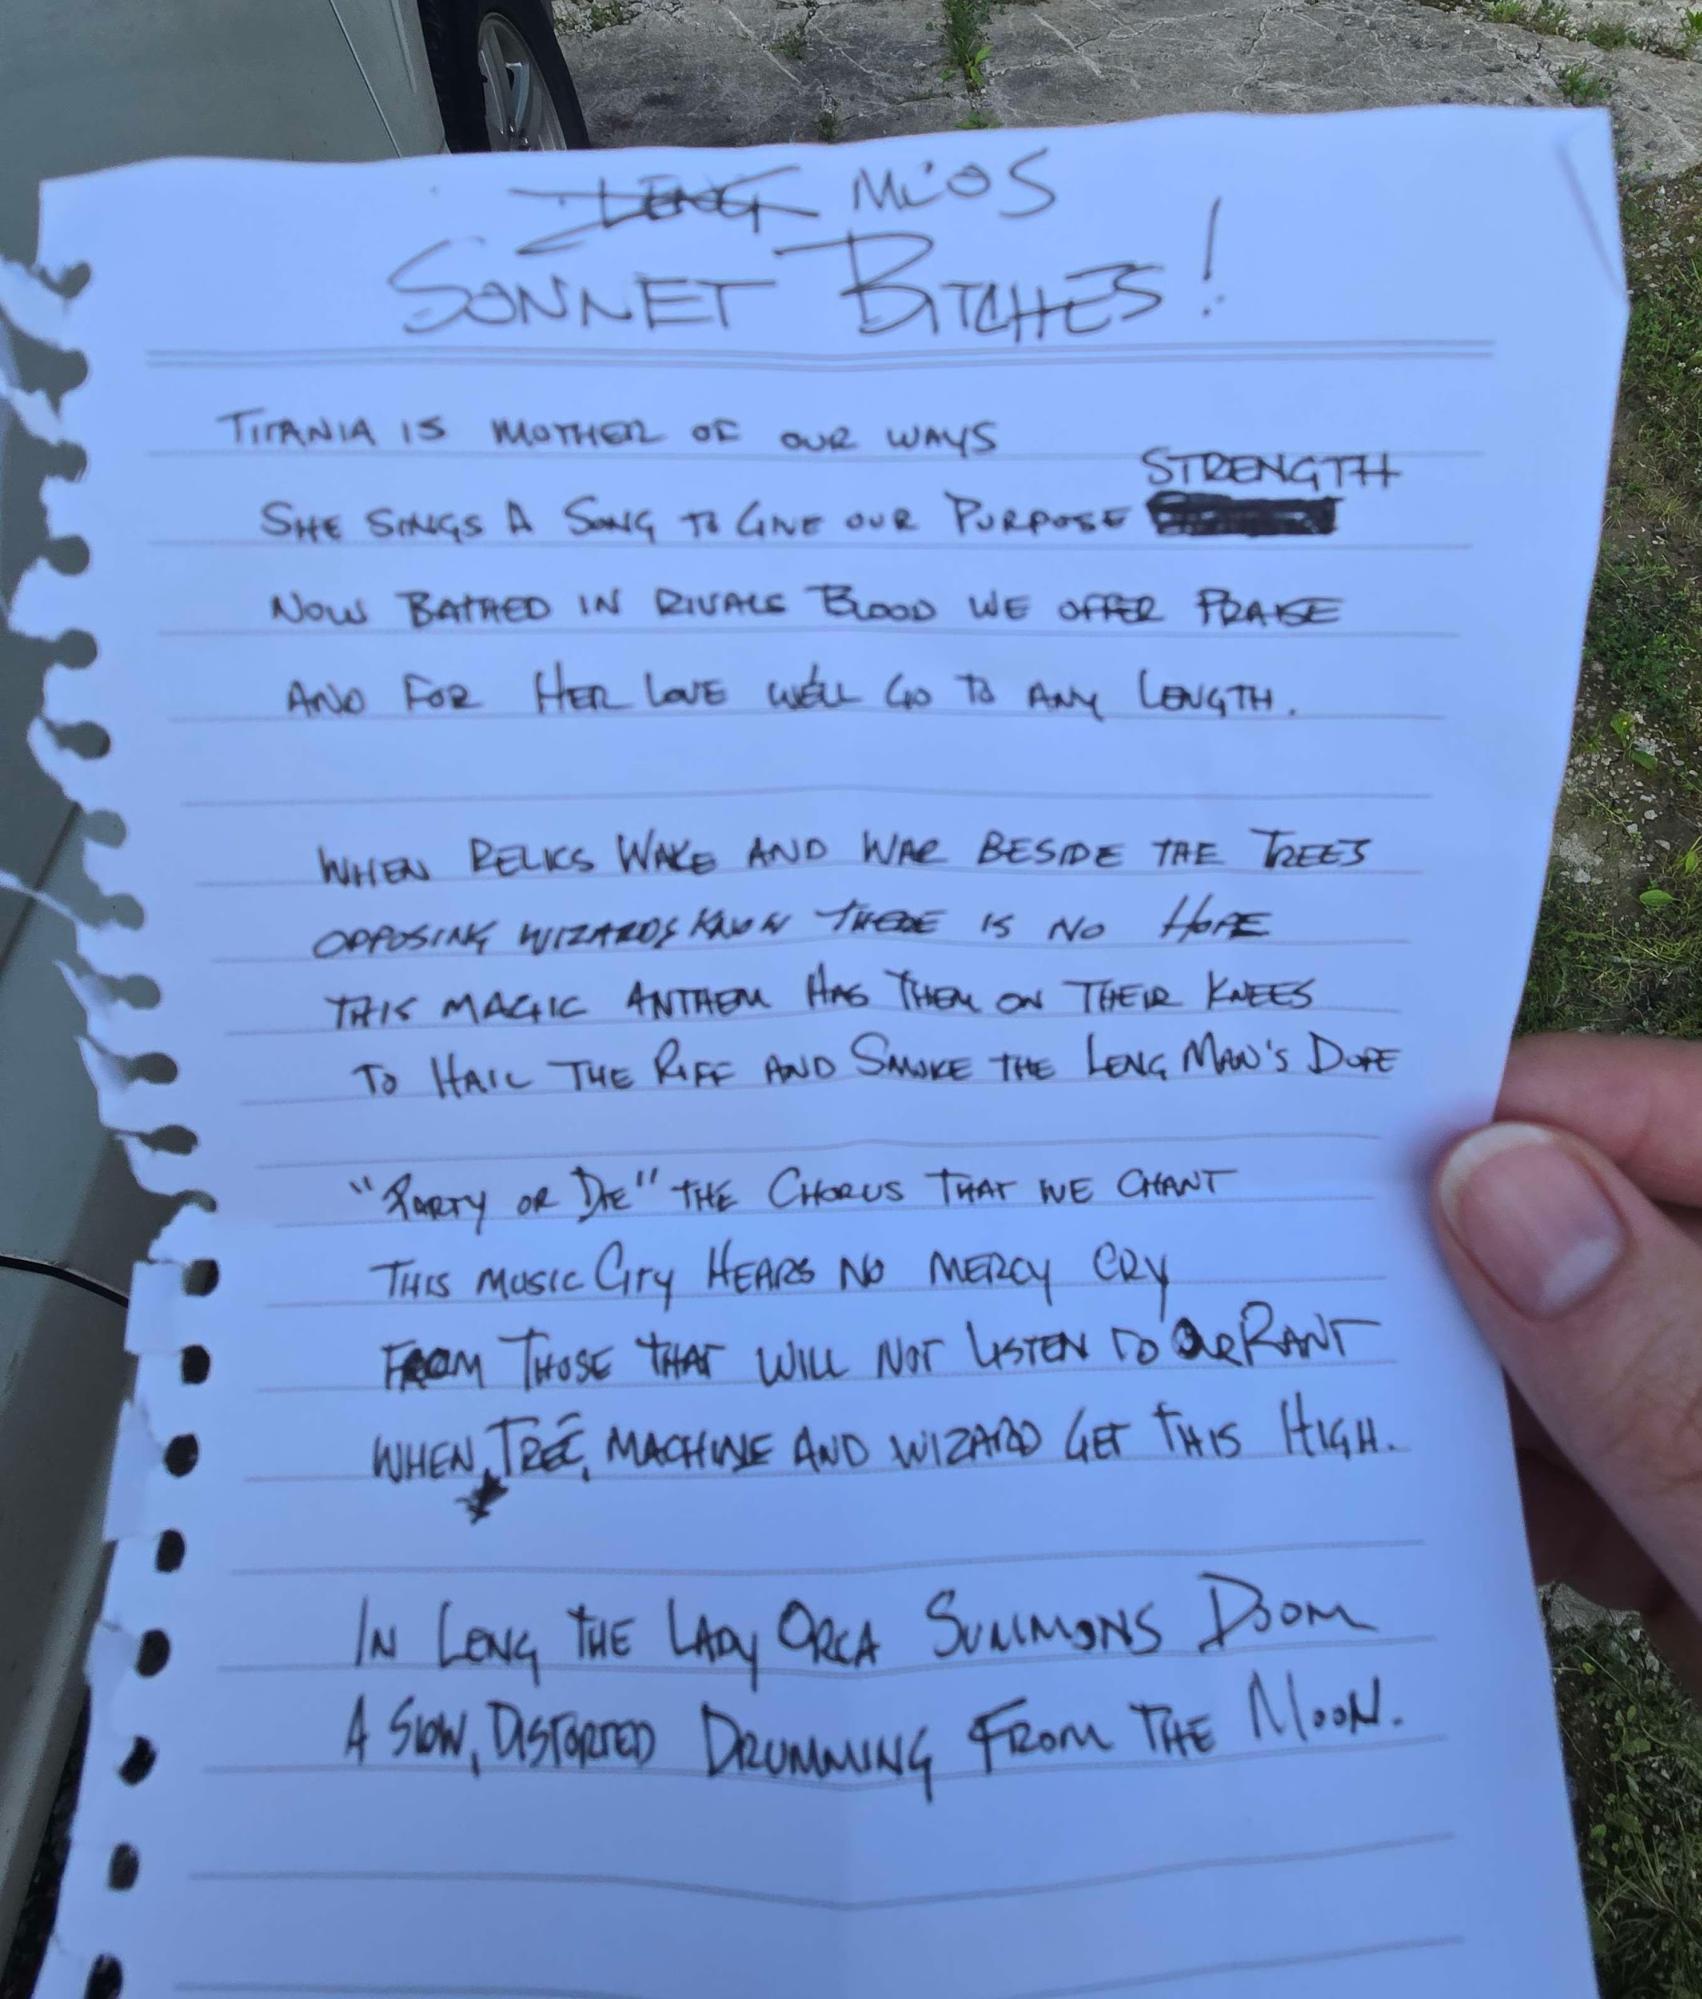 MCOS
SONNET BITCHES!
TITANIA IS MOTHER OF OUR WAYS
STRENGTH
SHE SINGS A SONG TO GIVE OUR PURPOSE
NOW BATHED IN RIVALS BLOOD WE OFFER PRAISE
AND FOR HER LOVE WE'LL GO TO ANY LENGTH.
WHEN RELICS WAKE AND WAR BESIDE THE TREES
OPPOSING WIZARDS KNOW THERE IS NO HOPE
THIS MAGIC ANTHEM HAS THEM ON THEIR KNEES
TO HAIL THE RIFF AND SMOKE THE LENG MAN'S DOPE
"PARTY OR DIE" THE CHORUS THAT WE CHANT
THIS MUSIC CITY HEARS NO MERCY CRY
FROM THOSE THAT WILL NOT LISTEN TO OUR RANT
WHEN TREE, MACHINE AND WIZARD GET THIS HIGH.
IN LENG THE LADY ORCA SUMMONS DOOM
A SLOW, DISTORTED DRUMMING FROM THE MOON.